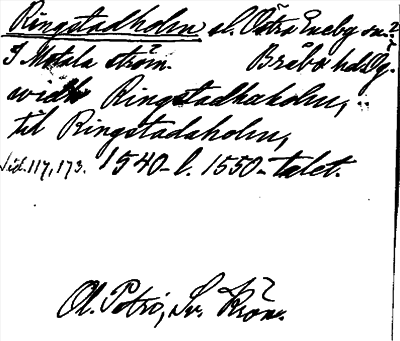 Ringstadholm sl. Östra Eneby sn. ?
I Motala ström. Bråbo hd. Ög.
widh Ringstadhaholm,
til Ringstadaholm,
Sid. 117, 173. 1540- l. 1550-talet.
Ol. Petri, Sv. Krön.